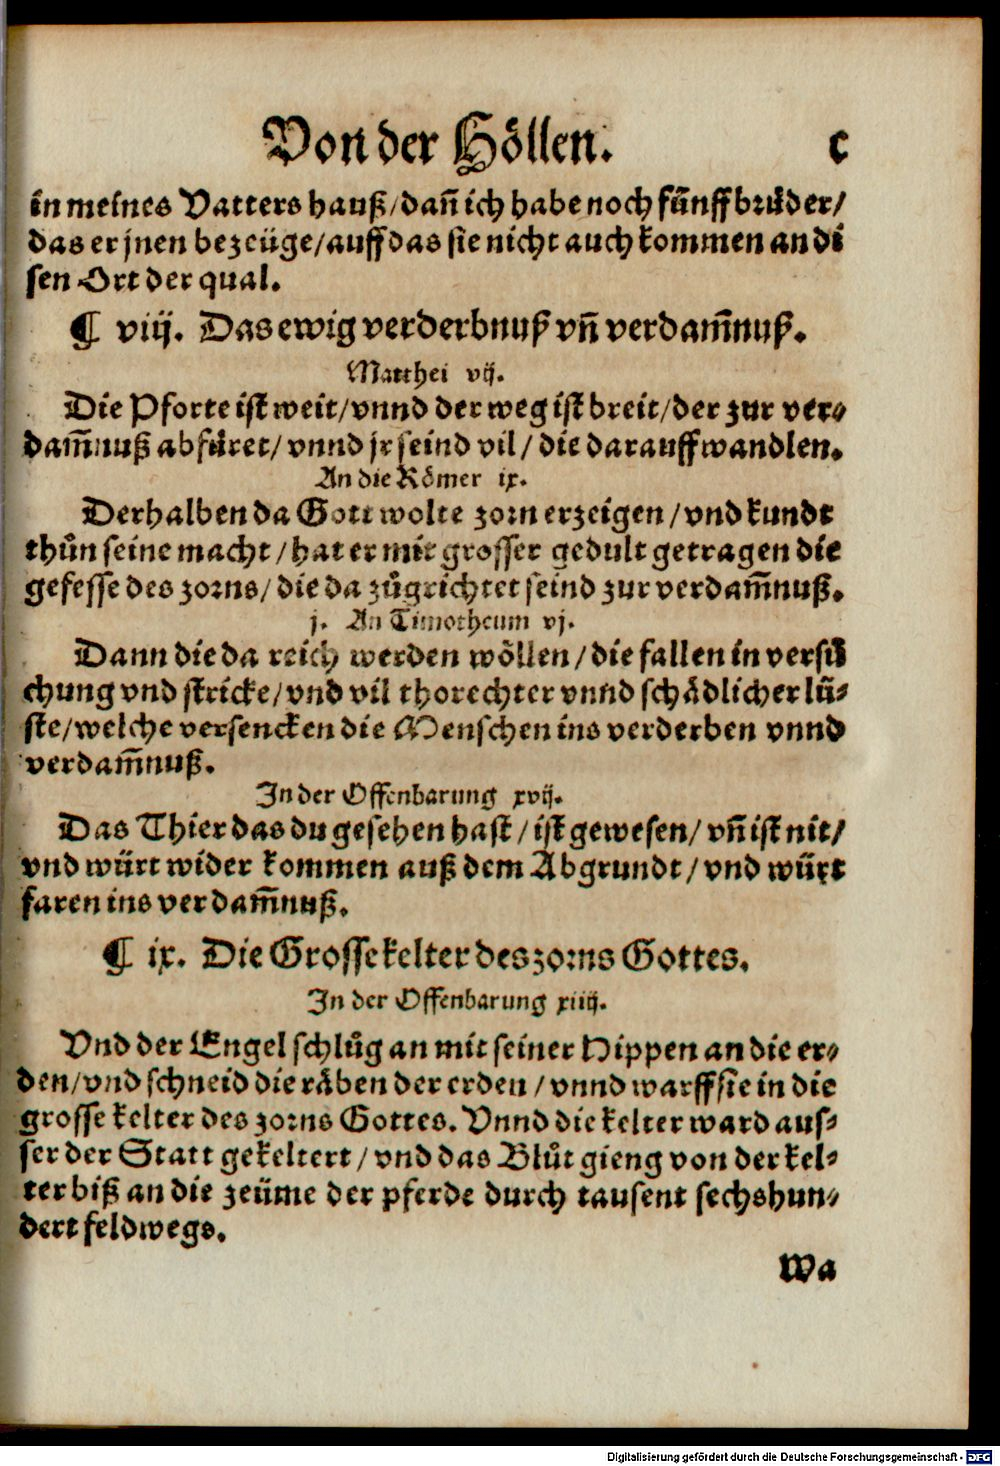 Von der Höllen. c
in meines Vatters hauß/dañ ich habe noch fünff brůder/
das er jnen bezeüge/auff das sie nicht auch kommen an di
sen Ort der qual.
¶ viij. Das ewig verderbnuß vñ verdam̃nuß.
Matthei vij.
Die Pforte ist weit/vnnd der weg ist breit/der zur ver⸗
dam̃nuß abfüret/vnnd jr seind vil/die darauff wandlen.
An die Römer ix.
Derhalben da Gott wolte zorn erzeigen/vnd kundt
thůn seine macht/hat er mit grosser gedult getragen die
gefesse des zorns/die da zůgrichtet seind zur verdam̃nuß.
j. An Timotheum vj.
Dann die da reich werden wöllen/die fallen in versů
chung vnd stricke/vnd vil thorechter vnnd schädlicher lü⸗
ste/welche versencken die Menschen ins verderben vnnd
verdam̃nuß.
In der Offenbarung xvij.
Das Thier das du gesehen hast/ist gewesen/vñ ist nit/
vnd würt wider kommen auß dem Abgrundt/vnd würt
faren ins verdam̃nuß.
¶ ix. Die Grosse kelter des zorns Gottes.
In der Offenbarung xiiij.
Vnd der Engel schlůg an mit seiner Hippen an die er⸗
den/vnd schneid die räben der erden/vnnd warff sie in die
grosse kelter des zorns Gottes. Vnnd die kelter ward aus⸗
ser der Statt gekeltert/vnd das Blůt gieng von der kel⸗
ter biß an die zeüme der pferde durch tausent sechshun⸗
dert feldwegs.
Wa
Digitalisierung gefördert durch die Deutsche Forschungsgemeinschaft - DFG